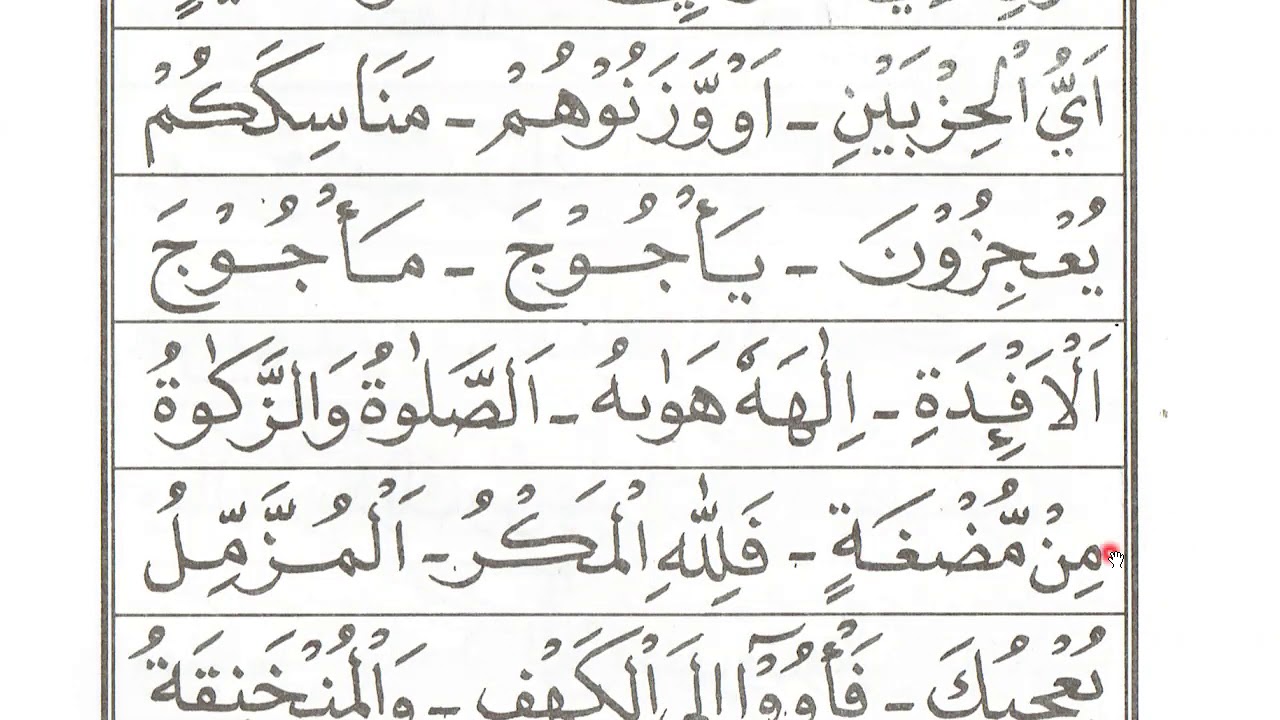 اَيُّ الْحِزْبَيْنِ ـ اَوْ وَّزَنُوْهُمْ ـ مَنَاسِكَكُمْ
يُعْجِزُوْنَ ـ يَأْجُوْجَ ـ مَأْجُوْجَ
اَلْاَفْـِٕدَةِ ـ اِلٰهَهٗ هَوٰىهُ ـ اَلصَّلٰوةُ وَالزَّكٰوةُ
مِنْ مُّضْغَةٍ ـ فَلِلّٰهِ الْمَكْرُ ـ اَلْمُزَّمِّلُ
يُعْجِبُكَ ـ فَأْوُوْٓا اِلَى الْكَهْفِ ـ وَالْمُنْخَنِقَةُ